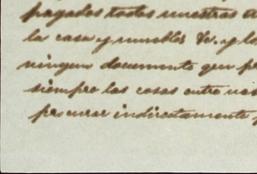 pagados todos nuestros
la casa y muebles &c. y lo
ningun documento que
siempre las cosas entre
procurar indirectamente